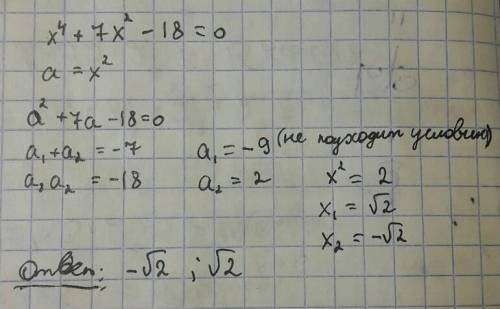 x⁴ + 7x² - 18 = 0
a = x²
a² + 7a - 18 = 0
a₁ + a₂ = -7
a₁ a₂ = -18
a₁ = -9 (не подходит условию)
a₂ = 2
x² = 2
x₁ = √2
x₂ = -√2
Ответ: -√2 ; √2